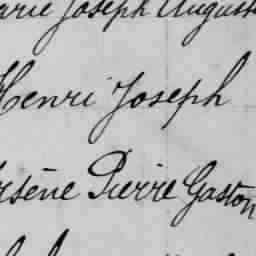 Marie Joseph Auguste
Henri Joseph
Arsène Pierre Gaston